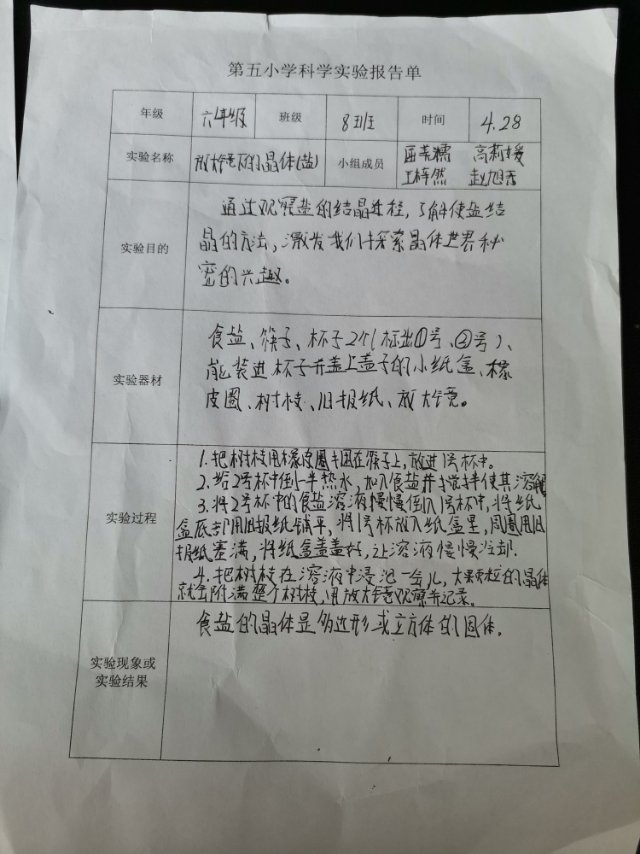 第五小学科学实验报告单
年级 六年级 班级 8班 时间 4.28
实验名称 放大镜下的晶体(盐) 小组成员 高莉媛
实验目的 通过观察盐的结晶过程,了解使盐结
晶的方法,激发我们探索晶体世界秘
密的兴趣。
实验器材 食盐、筷子、杯子2个(标出①号、②号)、
能装进杯子并盖上盖子的小纸盒、橡
皮圈、树枝、旧报纸、放大镜。
实验过程 1.把树枝用橡皮圈牢固在筷子上,放进1号杯中。
2.给2号杯中倒一半热水,加入食盐并搅拌使其溶解
3.将2号杯中的食盐溶液慢慢倒入1号杯中,将纸
盒底部用旧报纸铺平,将1号杯放入纸盒里,周围用旧
报纸塞满,将纸盒盖盖好,让溶液慢慢冷却.
4.把树枝在溶液中浸泡一会儿,大颗粒的晶体
就会附满整个树枝,用放大镜观察并记录。
实验现象或
实验结果
食盐的晶体是多边形或立方体的固体.